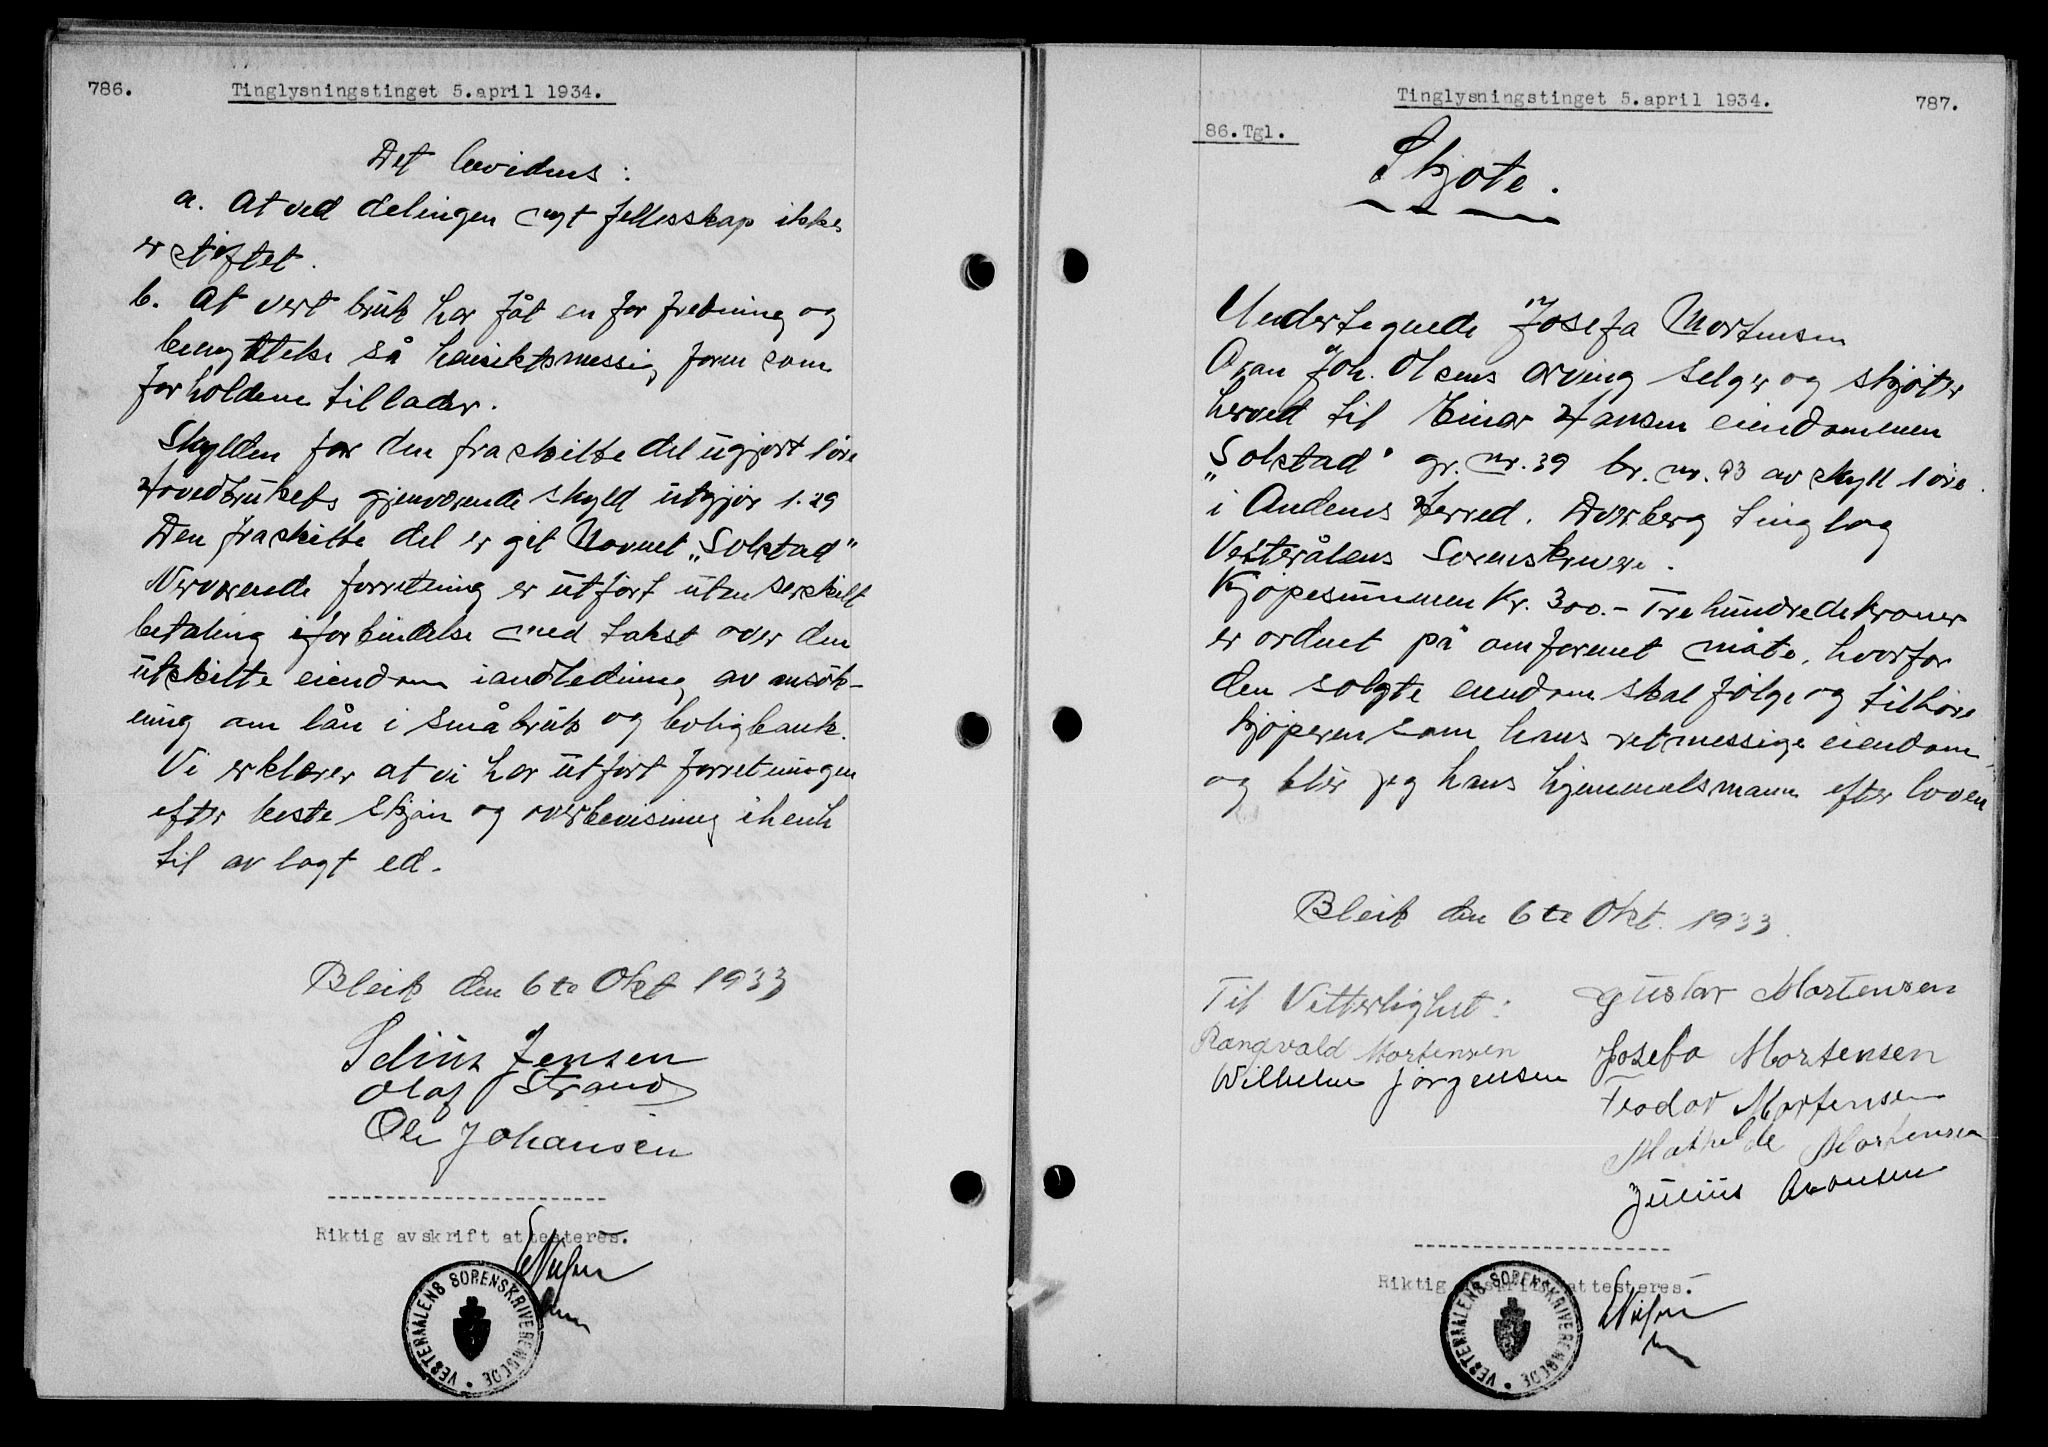 786.
Tinglysningstinget 5.april 1934.
Det bevidnes:
a. At ved delingen nyt fellesskap ikke
er stiftet.
b. At vert bruk har fåt en for fredning og
benyttelse så hensiktsmessig form som
forholdene tillader.
Skylden for den fraskilte del ugjort 1 øre
Hovedbrukets gjenværende skyld utgjør 1.29
Den fraskilte del er git Navnet „Solstad"
Nerværende forretning er utført uten serskilt
betaling iforbindelse med takst over den
utskilte eiendom ianledning av ansök-
ning om lån i småbruk og boligbank.
Vi erklærer at vi har utført forretningen
efter beste skjøn og overbevisning i henh
til avlagt ed.
Bleik den 6te Okt 1933
Selius Jensen
Olaf Strand
Ole Johansen
Riktig avskrift attesteres.
VESTERAALENS SORENSKRIVEREMBEDE
787.
Tinglysningstinget 5.april 1934.
86.Tgl.
Skjøte.
Undertegnede Josefa Mortensen
Joh. Olsens arving selger og skjøter
herved til Einar Hansen eiendommen
„Solstad" gr. nr. 39 br. nr. 93 av skyll 1 øre
i Andenes Herred. Dverberg tinglag
Vesterålens Sorenskriveri.
Kjøpesummen Kr. 300.- Tre hundrede kroner
er ordnet på omforenet måte, hvorfor
den solgte eiendom skal følge og tilhøre
kjøperen som hans retmessige eiendom,
og blir jeg hans hjemmelsmann efter loven
Bleik den 6te Okt. 1933.
Til Vitterlighet:
Rangvald Mortensen
Wilhelm Jørgensen
Gustav Mortensen
Josefa Mortensen
Teodor Mortensen
Mathilde Mortensen
Julius Aronsen
Riktig avskrift attesteres.
VESTERAALENS SORENSKRIVEREMBEDE